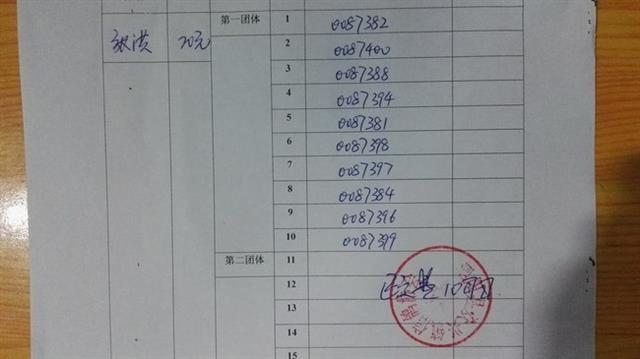 第一团体 1 0087382
张洪 20元 2 0087400
3 0087388
4 0087394
5 0087381
6 0087398
7 0087397
8 0087384
9 0087396
10 0087399
第二团体 11
12
13
14
15